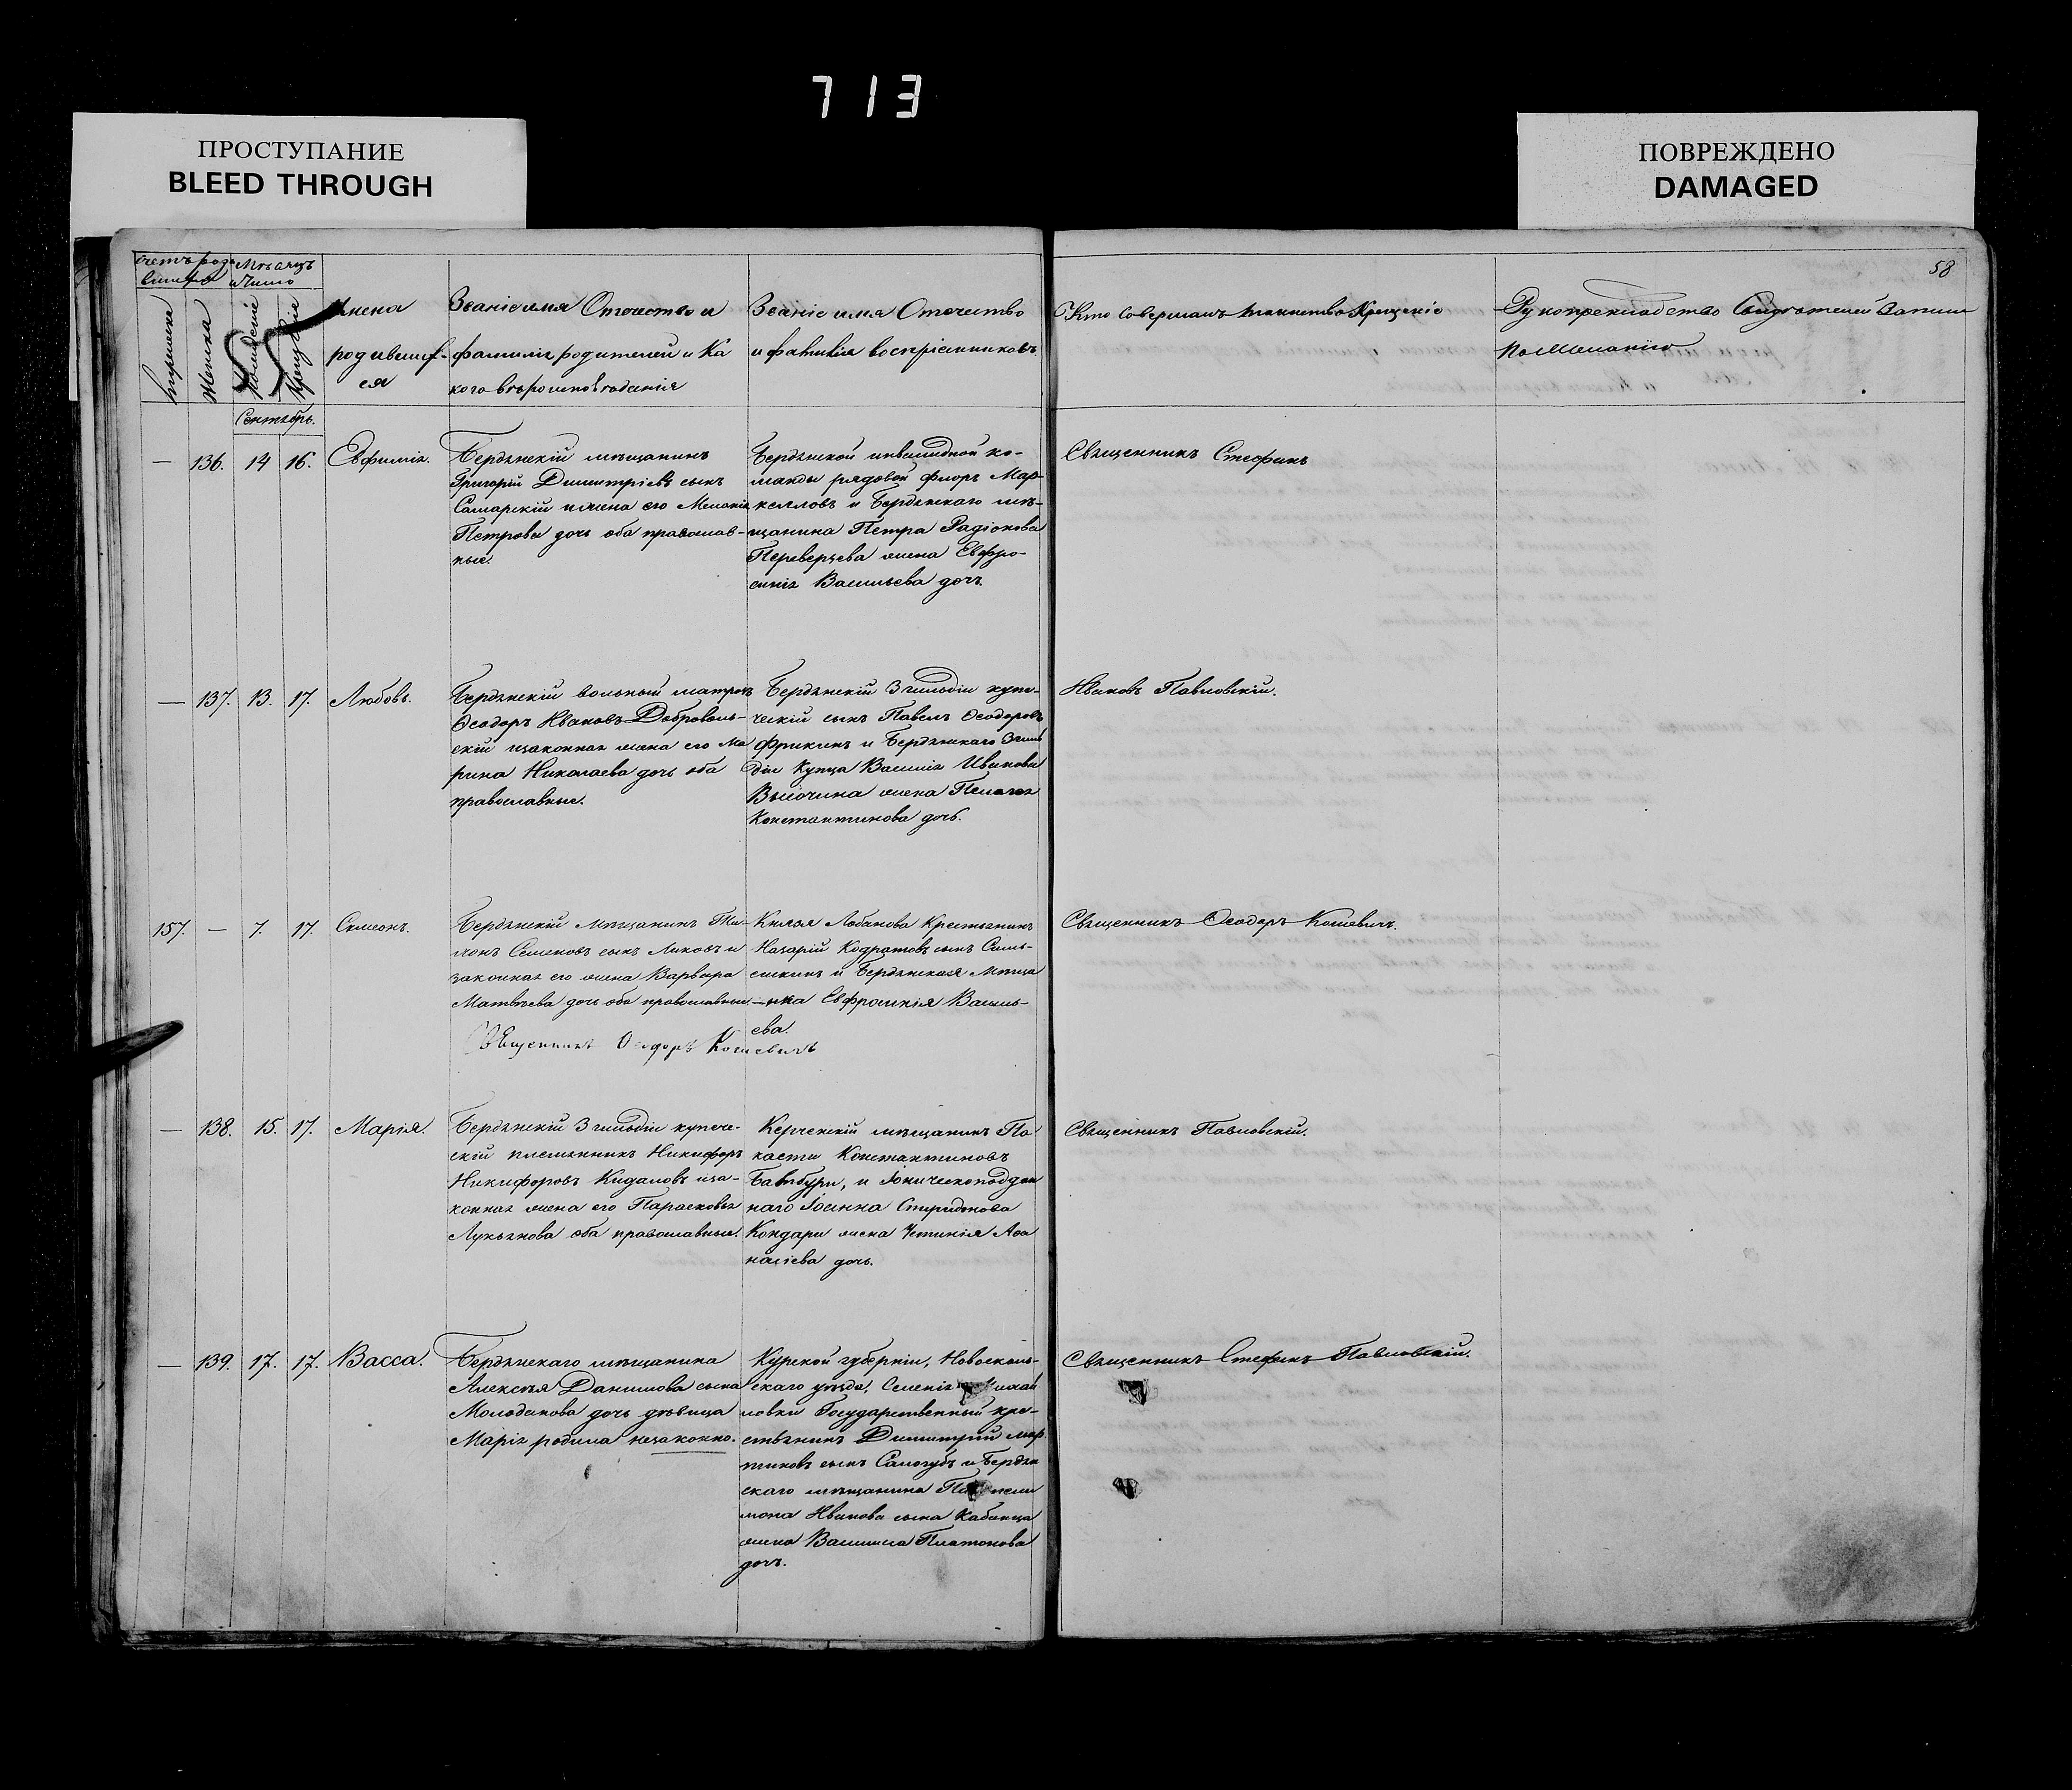 713
ПРОСТУПАНИЕ
BLEED THROUGH
ПОВРЕЖДЕНО
DAMAGED
58
Счетъ роди
вшихся
Мѣсяцъ
и Число
Мужеска
Женска
Рожденія
Крещенія
Имена
родившиф-
ся
Званіе имя Отечество и
фамилія родителей и Ка
кого вѣроисповѣданія
Званіе имя Отечество
и фамилія воспріемниковъ
Кто совершалъ таинство Крещенія
Рукоприкладство Свидѣтелей Записи
по Желанію
Сентябрь.
— 136. 14 16. Евфимія.
Бердянскій мѣщанинъ
Григорій Димитріевъ сынъ
Самарскій и жена его Меланія
Петрова дочь оба православ-
ные.
Бердянской инвалидной ко-
манды рядовой Флоръ Мар-
келловъ и Бердянскаго мѣ-
щанина Петра Радіонова
Переверзева жена Евфро-
синія Васильева дочь.
Священникъ Стефанъ
— 137. 13. 17. Любовь.
Бердянскій вольный матросъ
Ѳеодоръ Ивановъ Доброволь-
скій и законная жена его Ма
рина Николаева дочь оба
православные.
Бердянскій 3 гильдіи купе-
ческій сынъ Павелъ Ѳеодоровъ
Фрикинъ и Бердянскаго 3 гиль
діи Купца Василія Иванова
Высочина жена Пелагея
Константинова дочь.
Ивановъ Павловскій.
157. — 7. 17. Симеонъ.
Бердянскій Мѣщанинъ Ти-
монъ Семеновъ сынъ Ликовъ и
законная его жена Варвара
Матвѣева дочь оба православные
Священникъ Ѳеодоръ Кошевичъ
Князя Лобанова Крестьянинъ
Назарій Кодратовъ сынъ Синь-
ельникъ и Бердянская Мѣща
нка Евфросинія Василь-
ева.
Священникъ Ѳеодоръ Кошевичъ.
— 138. 15. 17. Марія.
Бердянскій 3 гильдіи купече-
скій племянникъ Никифоръ
Никифоровъ Кидаловъ и за-
конная жена его Параскова
Лукьянова оба православные.
Керченскій мѣщанинъ Па
касти Константиновъ
Бамбури, и Іоническоподдан
наго Іоанна Спиридонова
Кондари жена Устинія Аѳа
насіева дочь.
Священникъ Павловскій.
— 139. 17. 17. Васса.
Бердянскаго мѣщанина
Алексѣя Данилова сына
Молоданова дочь дѣвица
Марія родила незаконно.
Курской губерніи, Новосколь-
скаго уѣзда, Селенія Михай
ловки Государственный кре-
стьянинъ Димитрій Мар
тиновъ сынъ Самогубъ и Бердян
скаго мѣщанина Пантели
мона Иванова сына Кабанца
жена Василиса Платонова
дочь.
Священникъ Стефанъ Павловскій.